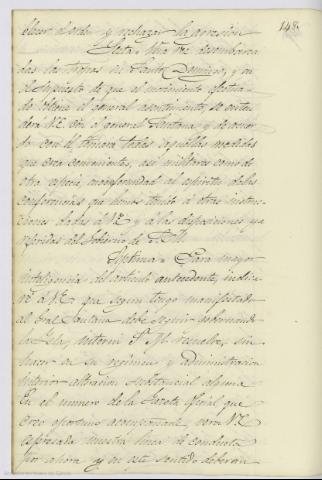 148.
blecer el orden y rechazar la agresion
Sesta. Una vez desembarca
das las tropas en Santo Domingo, y en
el supuesto de que el movimiento efectua
do obtiene el general asentimiento, se enten
derá V.E. con el general Santana, y de acuer
do con él tomará todas aquellas medidas
que crea convenientes, así militares como de
otra especie, en conformidad al espíritu de las
conferencias que hemos tenido á otras instruc
ciones dadas á V.E. y á las disposiciones ya
referidas del Gobierno de S.M.
Septima. Para mayor
inteligencia del artículo antecedente, indica
ré á V.E. que segun tengo manifestado
al Gral. Santana debe seguir gobernando
la Isla, interin S.M. resuelve, sin
hacer en su regimen y administracion
interior alteracion substancial alguna
En el numero de la Gaceta oficial que
creo oportuno acompañarle, verá V.E.
expresada nuestra linea de conducta
por ahora y en este sentido deberán